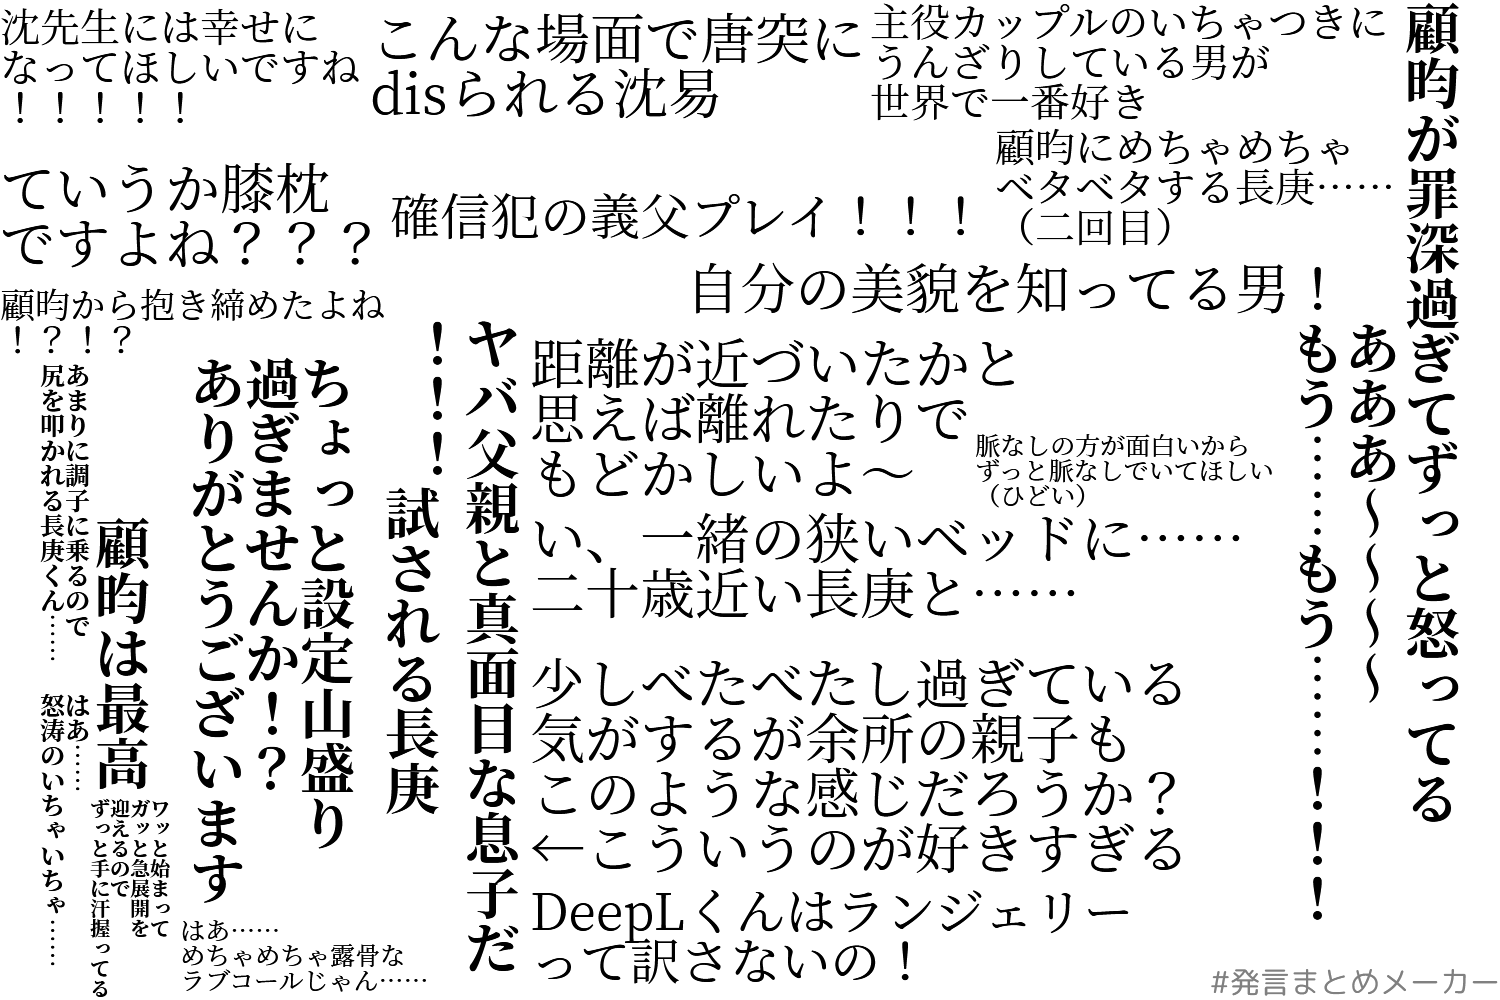 沈先生には幸せに
なってほしいですね
！！！！！
こんな場面で唐突に
disられる沈易
主役カップルのいちゃつきに
うんざりしている男が
世界で一番好き
顧昀が罪深過ぎてずっと怒ってる
ていうか膝枕
ですよね？？？
確信犯の義父プレイ！！！
顧昀にめちゃめちゃ
ベタベタする長庚……
（二回目）
自分の美貌を知ってる男！
顧昀から抱き締めたよね
！？！？
あああ～～～～
もう……もう……！！！
距離が近づいたかと
思えば離れたりで
もどかしいよ～
脈なしの方が面白いから
ずっと脈なしでいてほしい
（ひどい）
い、一緒の狭いベッドに……
二十歳近い長庚と……
少しべたべたし過ぎている
気がするが余所の親子も
このような感じだろうか？
←こういうのが好きすぎる
DeepLくんはランジェリー
って訳さないの！
ヤバ父親と真面目な息子だ
！！！試される長庚
ちょっと設定山盛り
過ぎませんか！？
ありがとうございます
顧昀は最高
あまりに調子に乗るので
尻を叩かれる長庚くん……
はあ……
怒涛のいちゃいちゃ……
ワッと始まって
ガッと急展開を
迎えるので
ずっと手に汗握ってる
はあ……
めちゃめちゃ露骨な
ラブコールじゃん……
#発言まとめメーカー